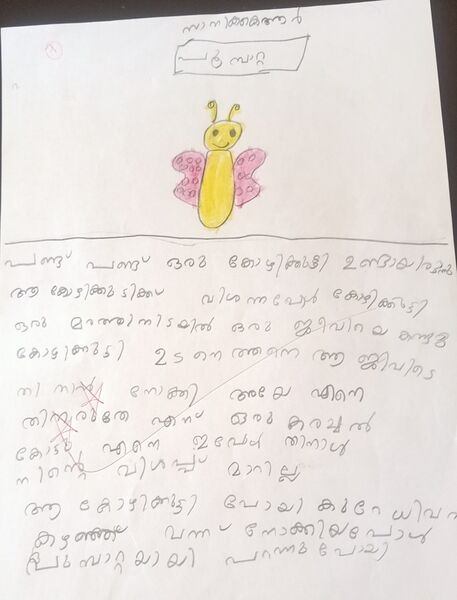 സാനിക്കെത്തൻ
പൂമ്പാറ്റ
പണ്ട് പണ്ട് ഒരു കോഴിക്കുട്ടി ഉണ്ടായിരുന്നു
ആ കോഴിക്കുടിക്ക് വിശന്നപ്പോൾ കോഴിക്കുട്ടി
ഒരു മരത്തിനിടയിൽ ഒരു ജീവിയെ കണ്ടു
കോഴിക്കുട്ടി ഉടനെത്തന്നെ ആ ജീവിടെ
തിന്നാൻ നോക്കി അയ്യോ എന്നെ
തിന്നരുതേ എന്ന് ഒരു കരച്ചൽ
കേട്ടു എന്നെ ഇപ്പോൾ തിന്നാൾ
നിന്റെ വിശപ്പ് മാറില്ല
ആ കോഴിക്കുട്ടി പോയി കുറേ ധിവസ
കഴഞ്ഞ് വന്ന് നോക്കിയപോൾ
പൂമ്പാറ്റയായി പറന്നുപോയി